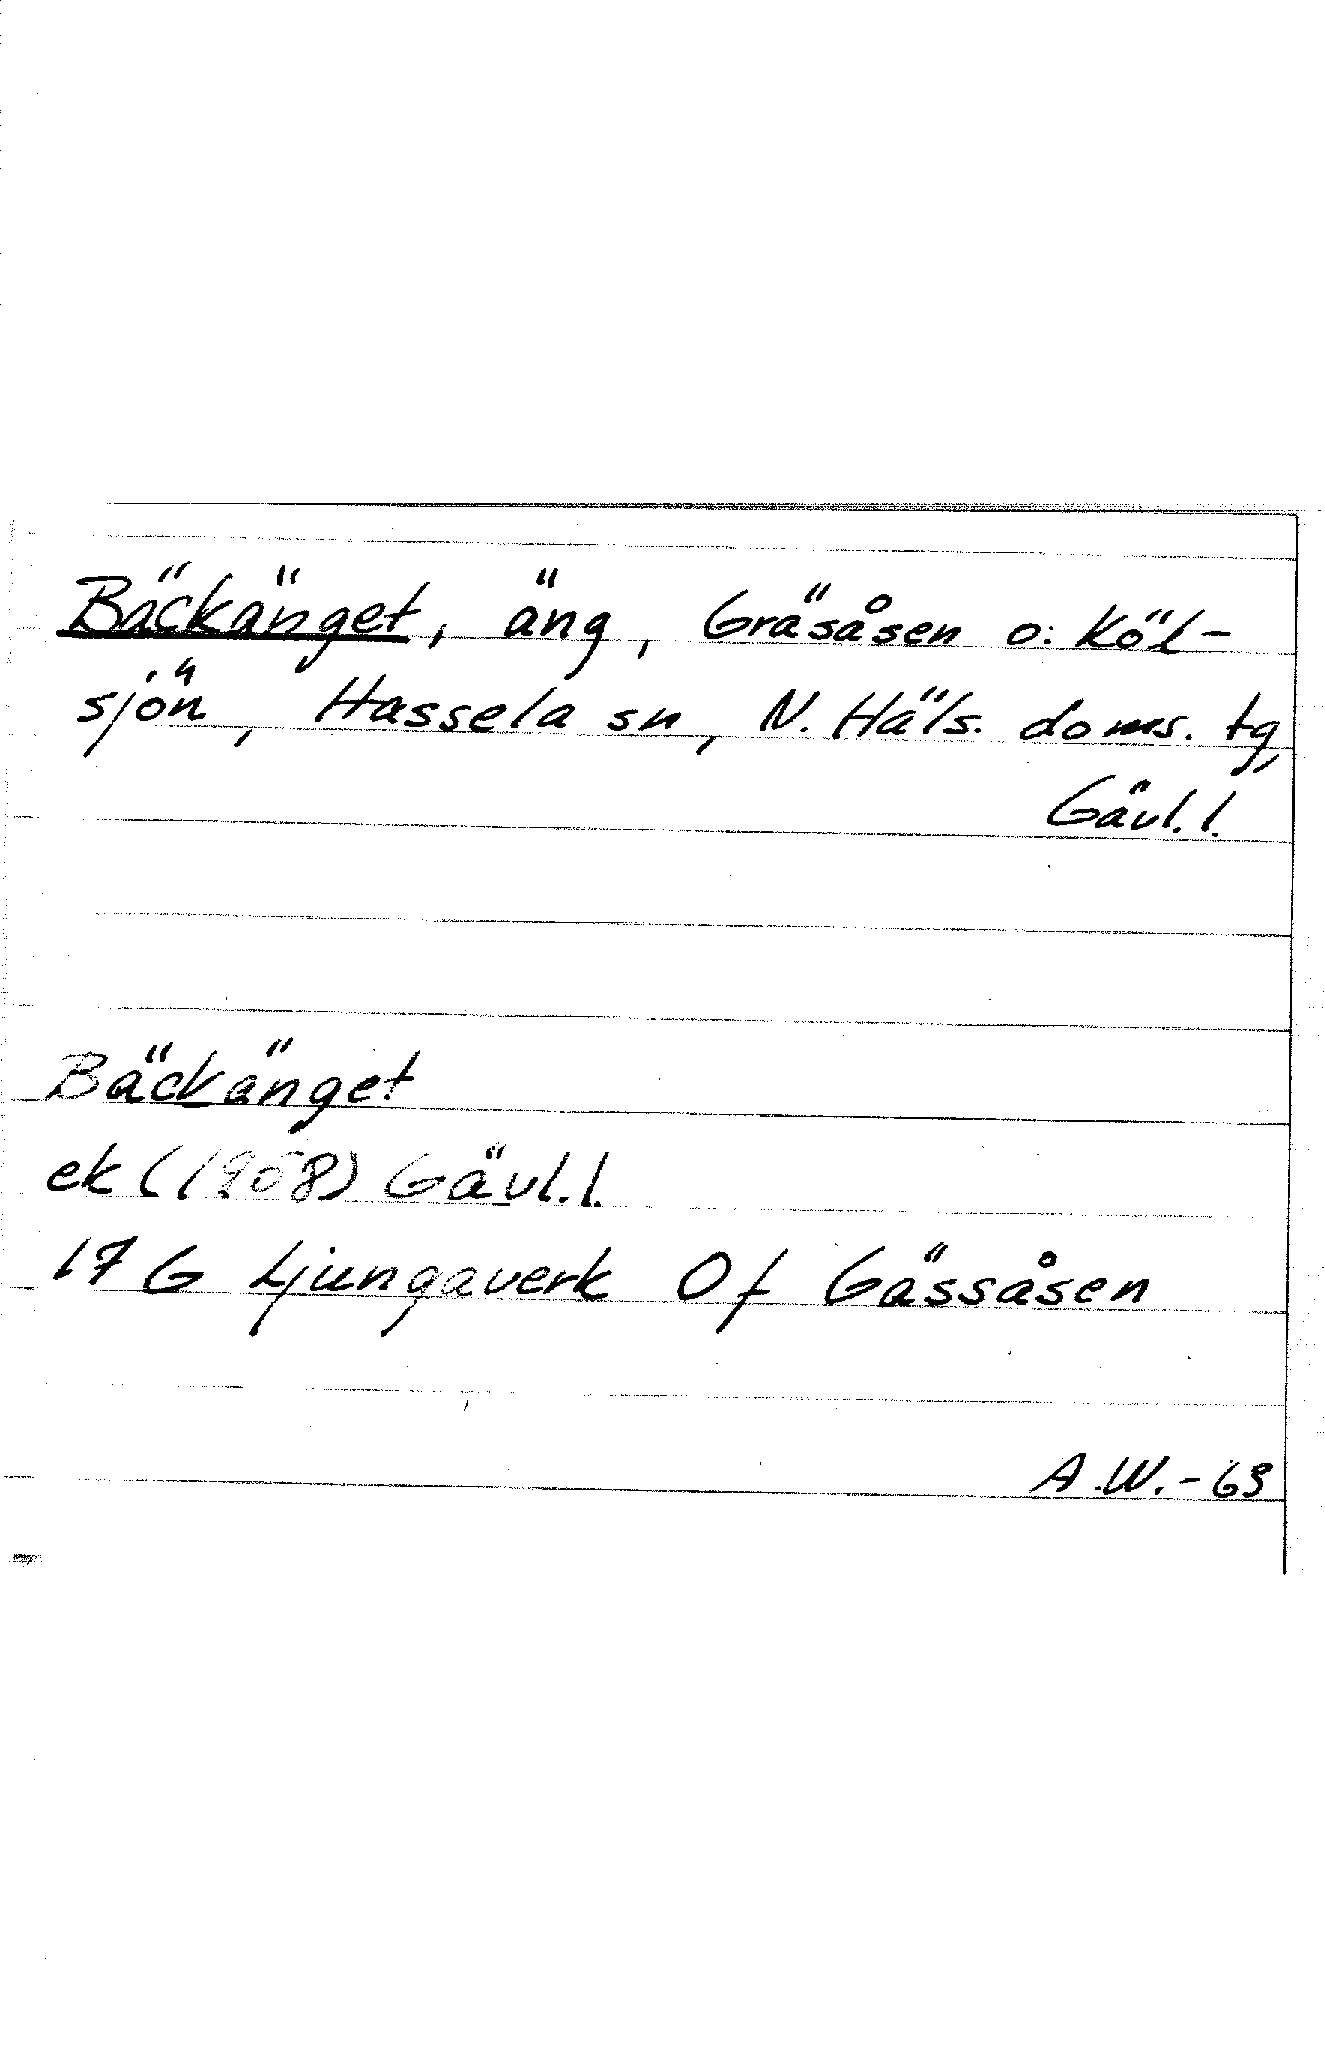 Bäckänget, äng, Gräsåsen o: Köl-
sjön, Hassela sn, N. Häls. doms. tg,
Gävl. l.
Bäckänget
ek (1968) Gävl. l.
17 G Ljungaverk 0f Gässåsen
A.W. - 69